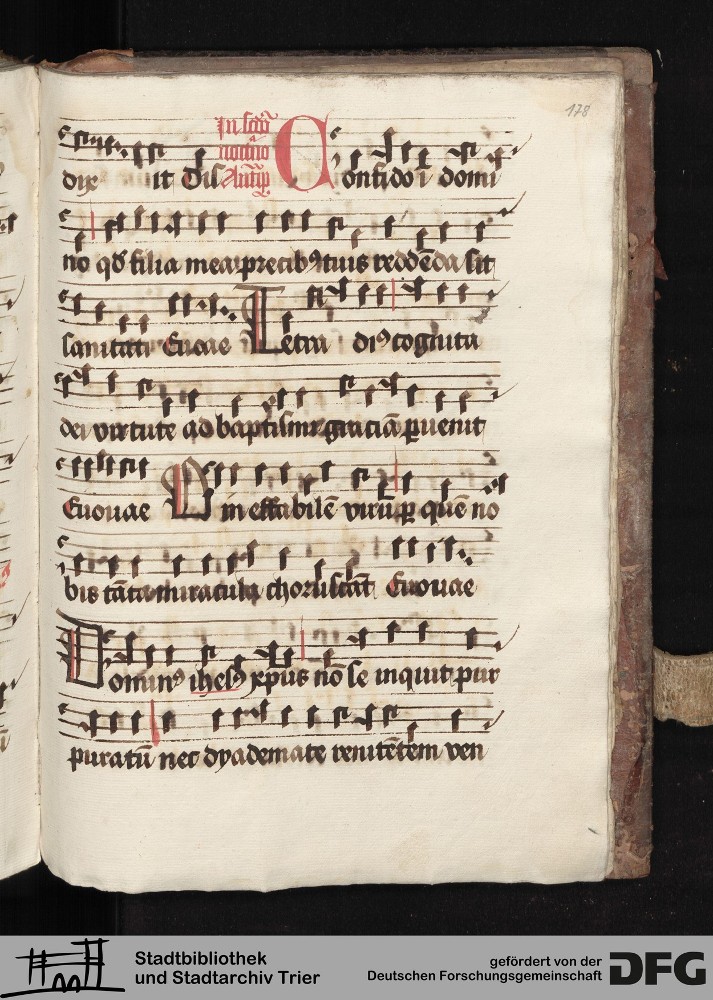 178
In scdo
nocturno
Antiph.
dix it Dñs Confido ĩ domi
no qđ filia mea p̱recibꝰ tuis reddēda sit
sanitati Euouae Tetra dīꝰ cognita
dei virtute ad baptismi graciā ꝑuenit
Euouae O ineffabilē virū ꝑ quē no
bis tāta miracula choruscāt Euouae
Dominꝰ ihesꝰ xp̄us nō se inquit pur
puratū nec dyademate renitētem ven
Stadtbibliothek
und Stadtarchiv Trier
gefördert von der
Deutschen Forschungsgemeinschaft
DFG